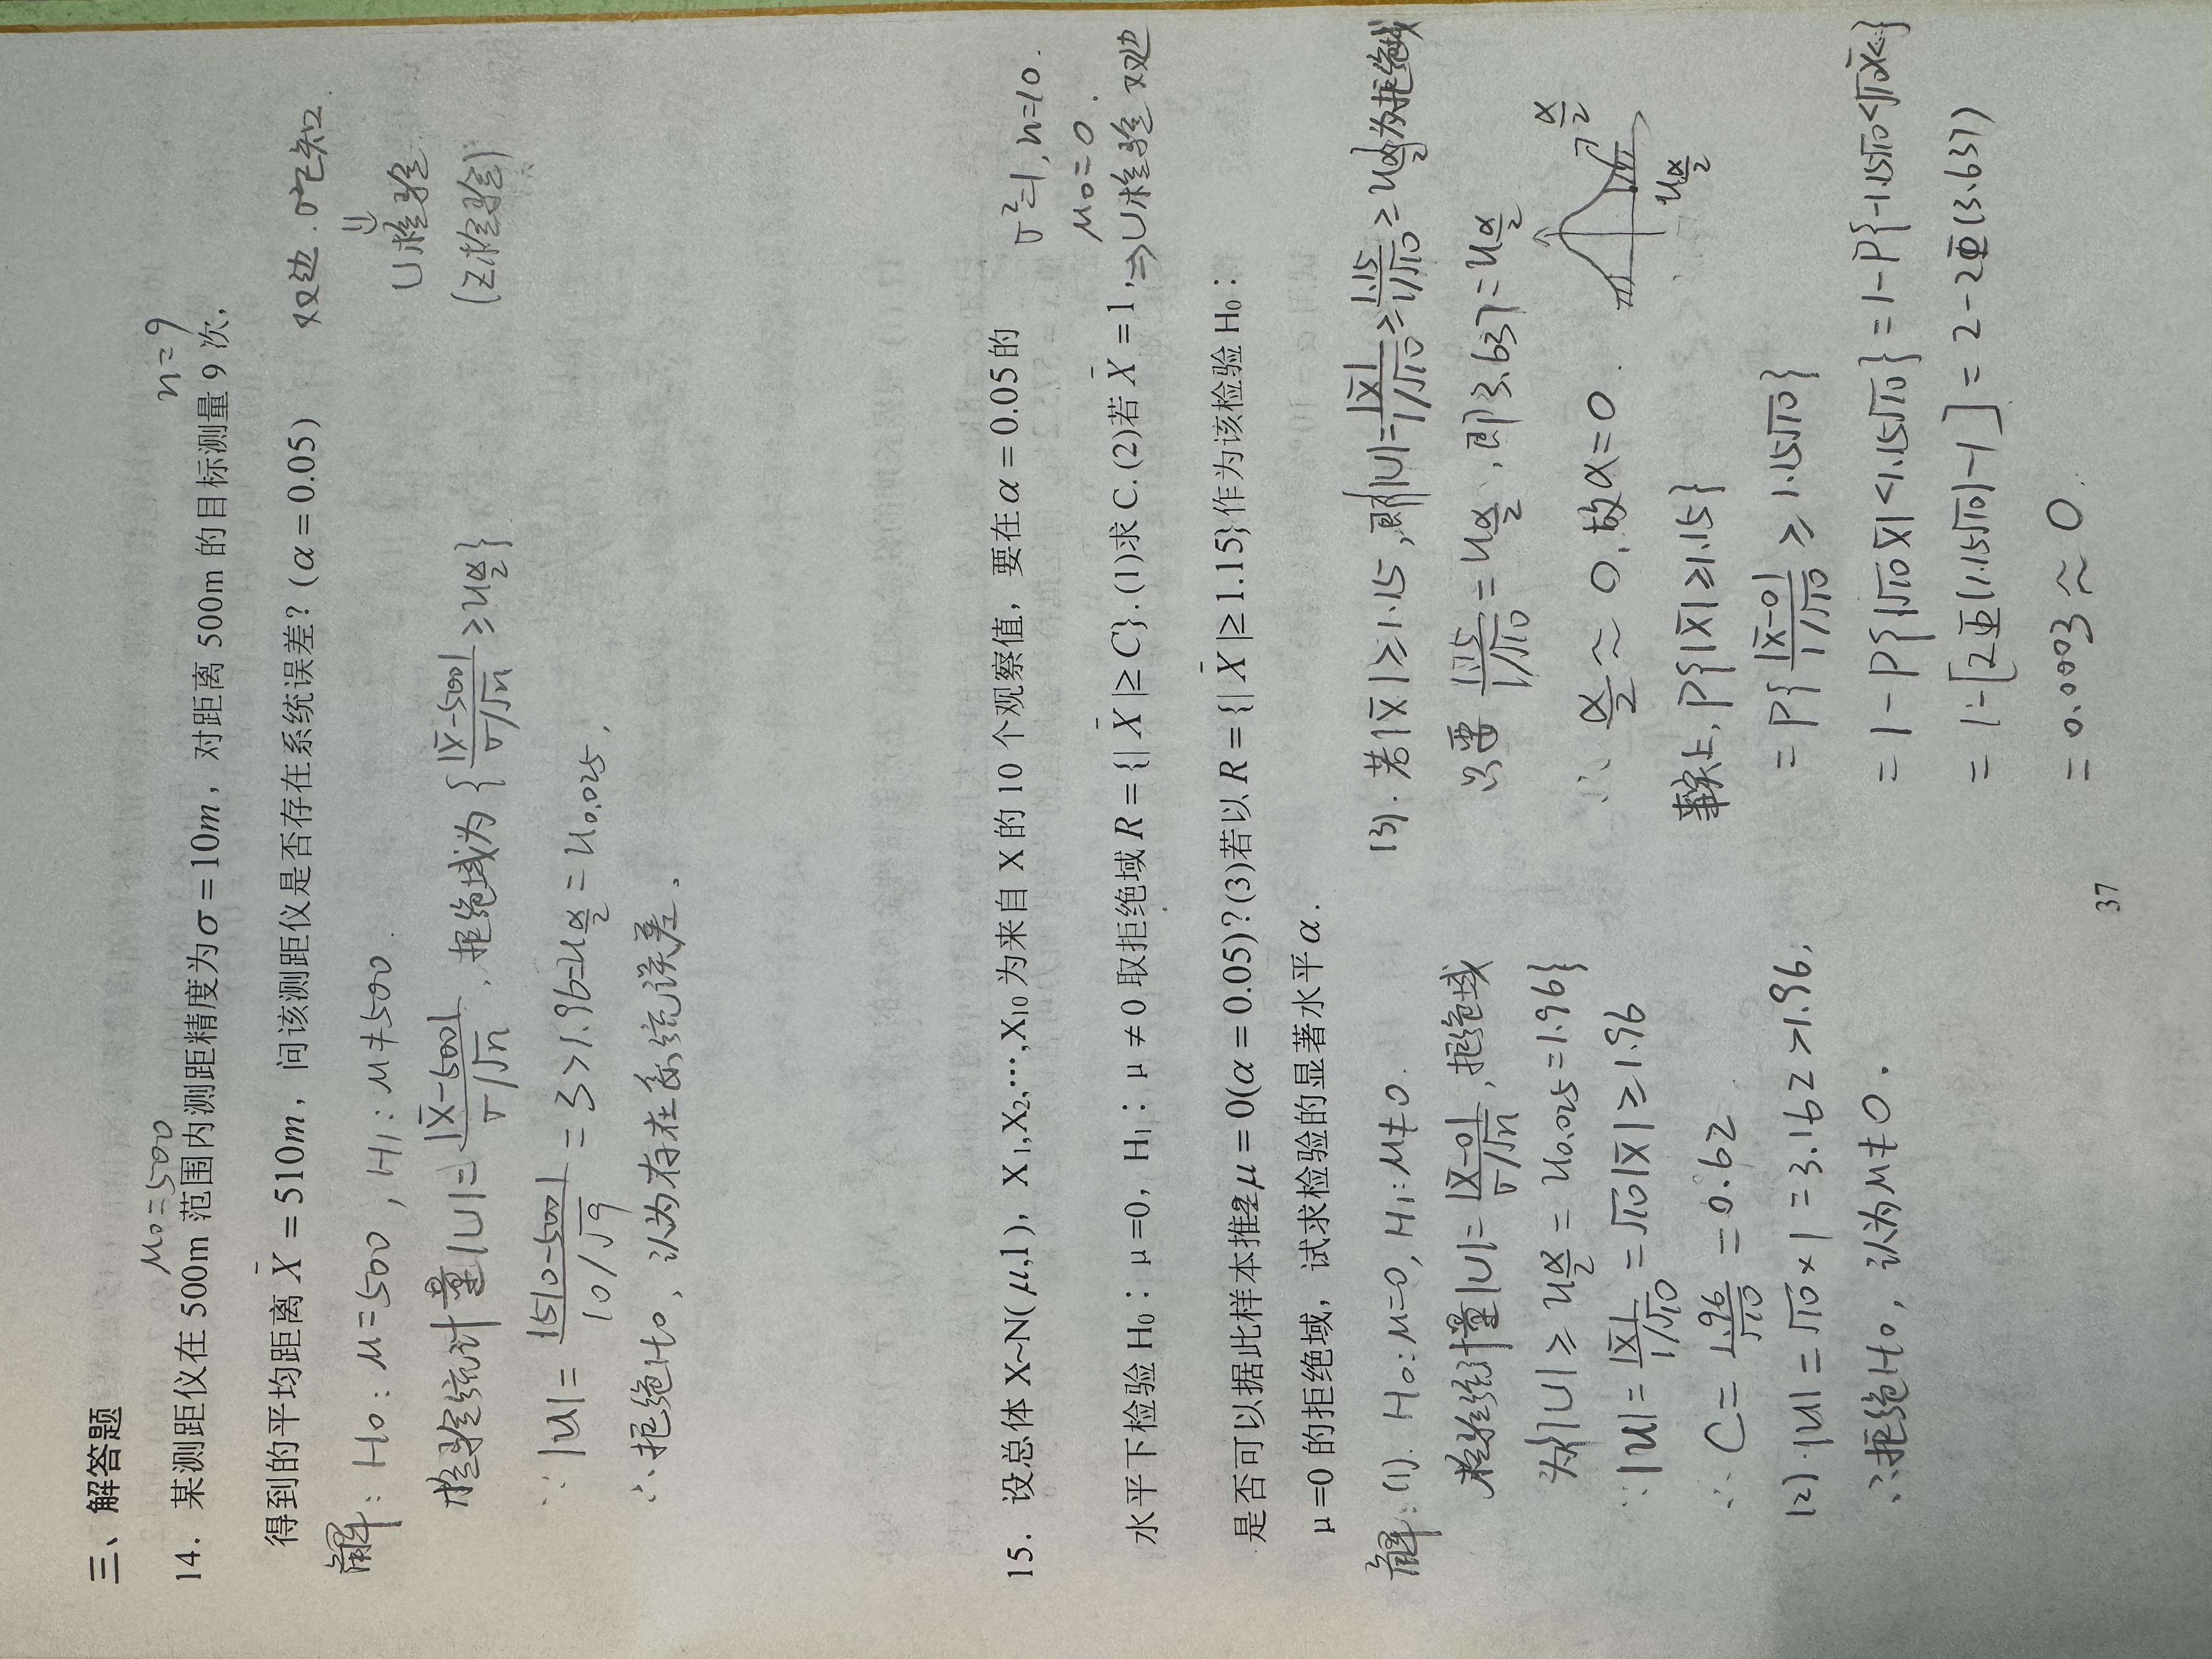 三、解答题
μ₀=500
n=9
14. 某测距仪在 500m 范围内测距精度为σ=10m，对距离 500m 的目标测量 9 次，
得到的平均距离 X̄ = 510m，问该测距仪是否存在系统误差？(α = 0.05)
双边．σ²已知．
⇓
U检验．
(Z检验)
解：H₀：μ=500，H₁：μ≠500．
检验统计量|U|=|X̄-500|/(σ/√n)，拒绝域为{|X̄-500|/(σ/√n) ≥ u_{α/2}}
∵ |U|=|510-500|/(10/√9) = 3>1.96=u_{α/2}=u_{0.025}，
∴拒绝H₀，认为存在系统误差．
15. 设总体 X~N(μ,1)，X₁,X₂,⋯,X₁₀ 为来自 X 的 10 个观察值，要在α = 0.05 的
σ²=1, n=10.
μ₀=0.
水平下检验 H₀：μ=0，H₁：μ≠0 取拒绝域 R = {| X̄ |≥ C}. (1)求 C. (2)若 X̄ = 1，
⇒U检验 双边
是否可以据此样本推 μ = 0(α = 0.05)？(3)若以 R = {| X̄ |≥ 1.15}作为该检验 H₀：
μ=0 的拒绝域，试求检验的显著水平α.
解：(1). H₀：μ=0, H₁：μ≠0.
检验统计量|U|=|X̄-0|/(σ/√n)，拒绝域
为{|U| ≥ u_{α/2} = u_{0.025}=1.96}
∵|U|=|X̄|/(1/√10)=√10|X̄|≥1.96
∴ C=1.96/√10=0.62
(2).|U|=√10×1=3.162>1.96，
∴拒绝H₀，认为μ≠0．
(3). 若|X̄|≥1.15，即{|U|=|X̄|/(1/√10)≥1.15/(1/√10)≥u_{α/2}}为拒绝域
只要 1.15/(1/√10)=u_{α/2}，即3.637=u_{α/2}
∴ α/2≈0，故α=0．
α/2
u_{α/2}
事实上，P{|X̄|≥1.15}
=P{|X̄-0|/(1/√10) ≥ 1.15√10}
=1-P{|√10 X̄|<1.15√10}=1-P{-1.15√10<√10X̄<…}
=1-[2Φ(1.15√10)-1]=2-2Φ(3.637)
=0.0003≈0.
37